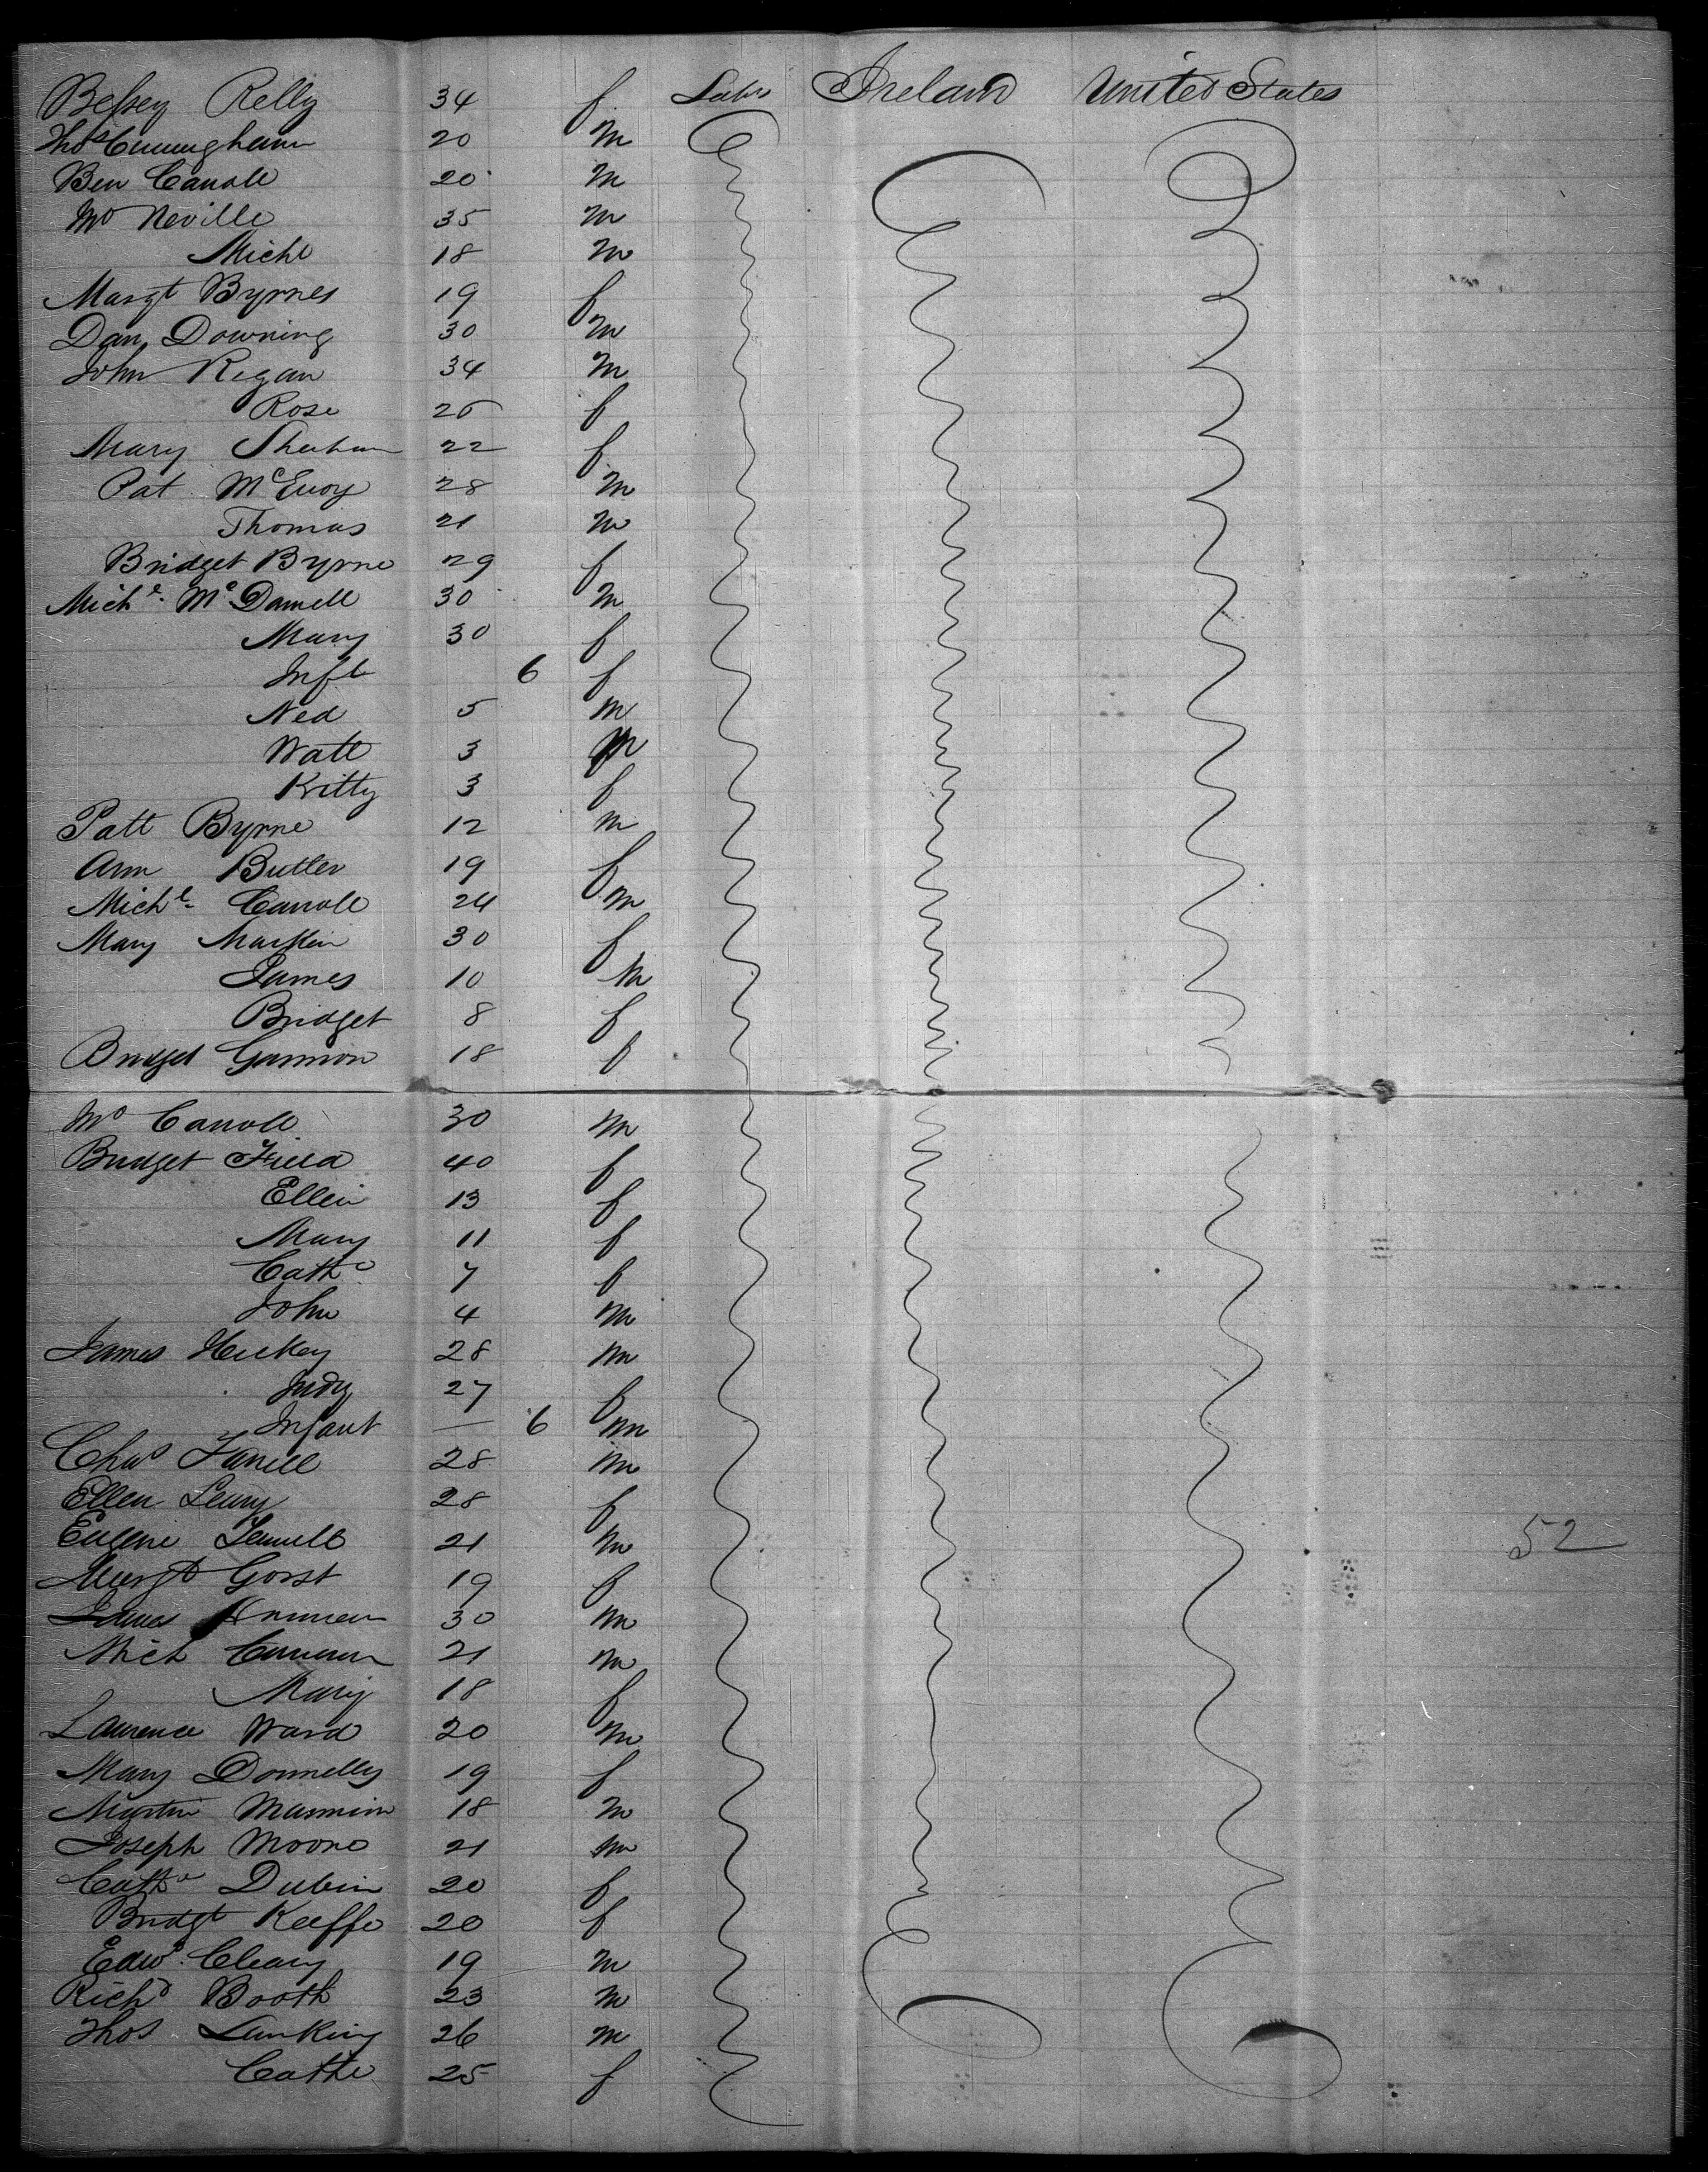 Betsey Relly 34 f Labr Ireland United States
Thos Cunningham 20 m
Ben Carroll 20 m
Mo Neville 35 m
Michl 18 m
Margt Byrnes 19 f
Dan Downing 30 m
John Regan 34 m
Rose 25 f
Mary Sheehan 22 f
Pat McEvoy 28 m
Thomas 21 m
Bridget Byrne 29 f
Michl McDonnell 30 m
Mary 30 f
Inft 6 f
Ned 5 m
Watt 3 m
Kitty 3 f
Patt Byrne 12 m
Ann Butler 19 f
Michl Carroll 24 m
Mary 30 f
James 10 m
Bridget 8 f
Bridget Gannon 18 f
Mo Carroll 30 m
Bridget Field 40 f
Ellen 13 f
Mary 11 f
Cathe 7 f
John 4 m
James Hickey 28 m
Judy 27 f
Infant — 6 m
Chas Farrell 28 m
Ellen Leary 28 f
Eugene 21 m
52
Margt Gorst 19 f
James 30 m
Mich 21 m
Mary 18 f
Laurence Ward 20 m
Mary Donnelly 19 f
Martin Mannion 18 m
Joseph Moore 21 m
Cathe Dubin 20 f
Bridgt Keeffe 20 f
Edwd Cleary 19 m
Richd Booth 23 m
Thos Lanking 26 m
Cathe 25 f